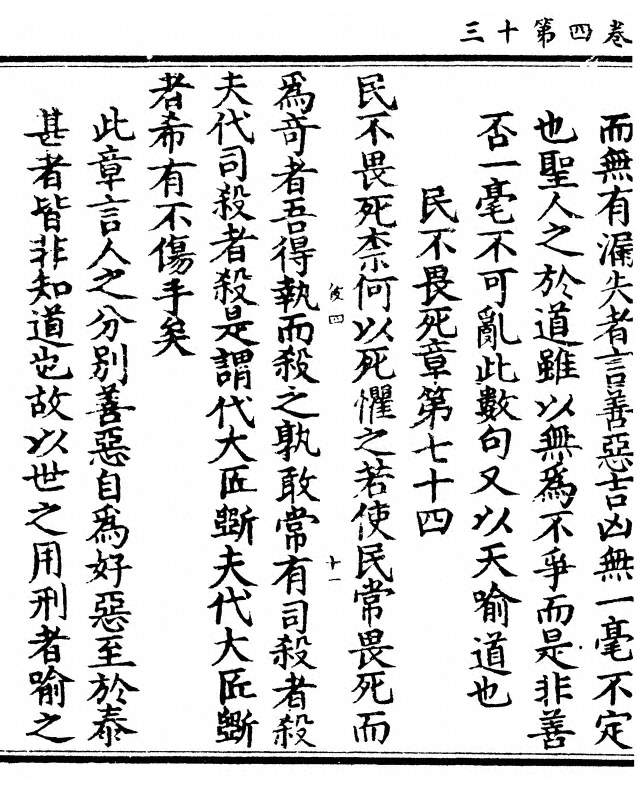 卷四第十三
而無有漏失者言善惡吉凶無一毫不定
也聖人之於道雖以無為不爭而是非善
否一毫不可亂此數句又以天喻道也
民不畏死章第七十四
民不畏死柰何以死懼之若使民常畏死而
為奇者吾得執而殺之孰敢常有司殺者殺
夫代司殺者殺是謂代大匠斲夫代大匠斲
者希有不傷手矣
此章言人之分別善惡自為好惡至於泰
甚者皆非知道也故以世之用刑者喻之
十一